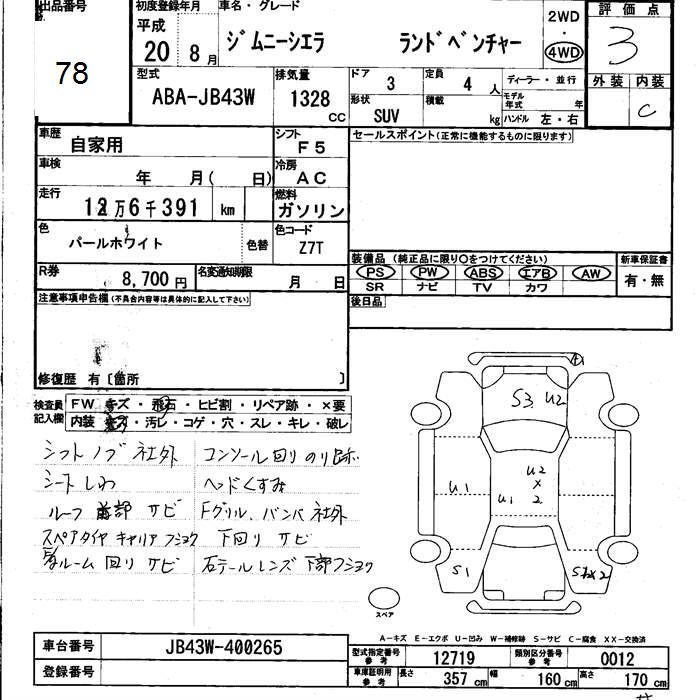 出品番号
78
初度登録年月
平成
20 8月
車名・グレード
ジムニーシエラ ランドベンチャー
2WD
・
4WD
評価点
3
型式
ABA-JB43W
排気量
1328
CC
ドア
3
定員
4 人
ディーラー・並行
モデル年式 年
形状
SUV
積載
kg
ハンドル 左・右
外装 内装
C
車歴
自家用
シフト
F5
車検
年 月( 日)
冷房
AC
走行
12万6千391 km
燃料
ガソリン
色
パールホワイト
色替
色コード
Z7T
R券
8,700円
名変通知期限
月 日
セールスポイント(正常に機能するものに限ります)
装備品 (純正品に限り○をつけてください)
PS PW ABS エアB AW
SR ナビ TV カワ
新車保証書
有・無
後日品
注意事項申告欄(不具合内容等は具体的に記入して下さい)
修復歴 有〔箇所 〕
検査員
記入欄
FW キズ・飛石・ヒビ割・リペア跡・×要
内装 キズ・汚レ・コゲ・穴・スレ・キレ・破レ
シフトノブ社外 コンソール回りのり跡
シートしわ ヘッドくすみ
ルーフ 前部 サビ Fグリル、バンパ社外
スペアタイヤキャリアフショク 下回り サビ
ルーム回り サビ 右テールレンズ下部フショク
A
S3 U2
U1
U2
×
2
U1
S1
スペア
A-キズ E-エクボ U-凹み W-補修跡 S-サビ C-腐食 XX-交換済
車台番号 JB43W-400265
登録番号
型式指定番号
参考
12719
類別区分番号
参考
0012
車庫証明用
参考
長さ 357cm 幅 160cm 高さ 170cm